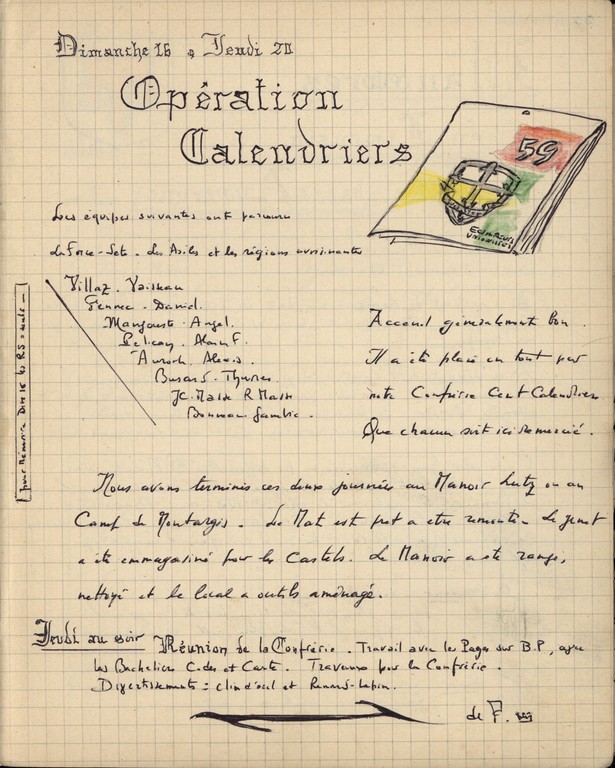 Dimanche 16 & Jeudi 20
Opération
Calendriers
59
ECLAIREURS
UNIONISTES
Les équipes suivantes ont parcouru
la Force - Sete - Les Asiles et les régions avoisinantes
Villaz - Vaisseau
Fennec - Daniel.
Mangouste - Angel.
Pelican - Alain F.
Auroch - Alexis.
Busard - Thyrses
JC. Masse R Masse
Bonneau Gambie.
pour Mémoire Dim 16 les RS = seuls -
Accueil généralement bon.
Il a été placé en tout par
notre Confrérie Cent Calendriers
Que chacun soit ici remercié.
Nous avons terminés ces deux journées au Manoir Lutz ou au
Camp de Montargis - Le Mat est pret a etre remonté - Le genet
a été emmagasiné pour les Castels. Le Manoir a été rangé,
nettoyé et le local a outils aménagé.
Jeudi au soir Réunion de la Confrérie. Travail avec les Pages sur B.P, avec
les Bacheliers Codes et Carte. Travaux pour la Confrérie.
Divertissements : clin d'œil et Renard-lapin.
de F.